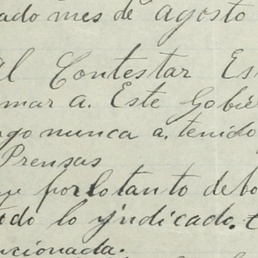 ado mes de agosto
al Contestar Es
mar a. Este Gobie
go nunca a. tenido
Prensas
ue por lo tanto debo
do lo yndicado.
ncionada.